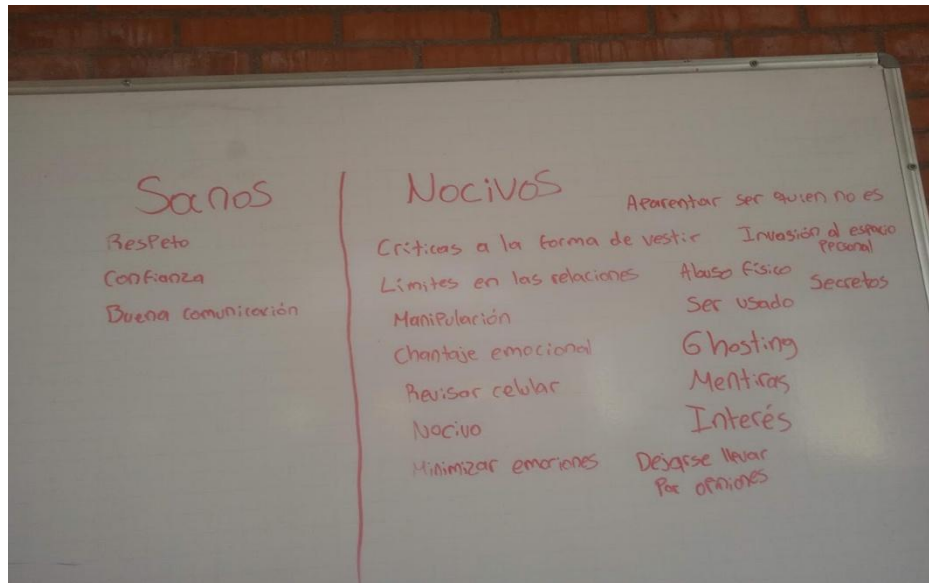 Sanos
Respeto
Confianza
Buena comunicación
Nocivos
Críticas a la forma de vestir
Límites en las relaciones
Manipulación
Chantaje emocional
Revisar celular
Nocivo
Minimizar emociones
Aparentar ser quien no es
Invasión al espacio
personal
Abuso físico
Secretos
Ser usado
Ghosting
Mentiras
Interés
Dejarse llevar
Por opiniones